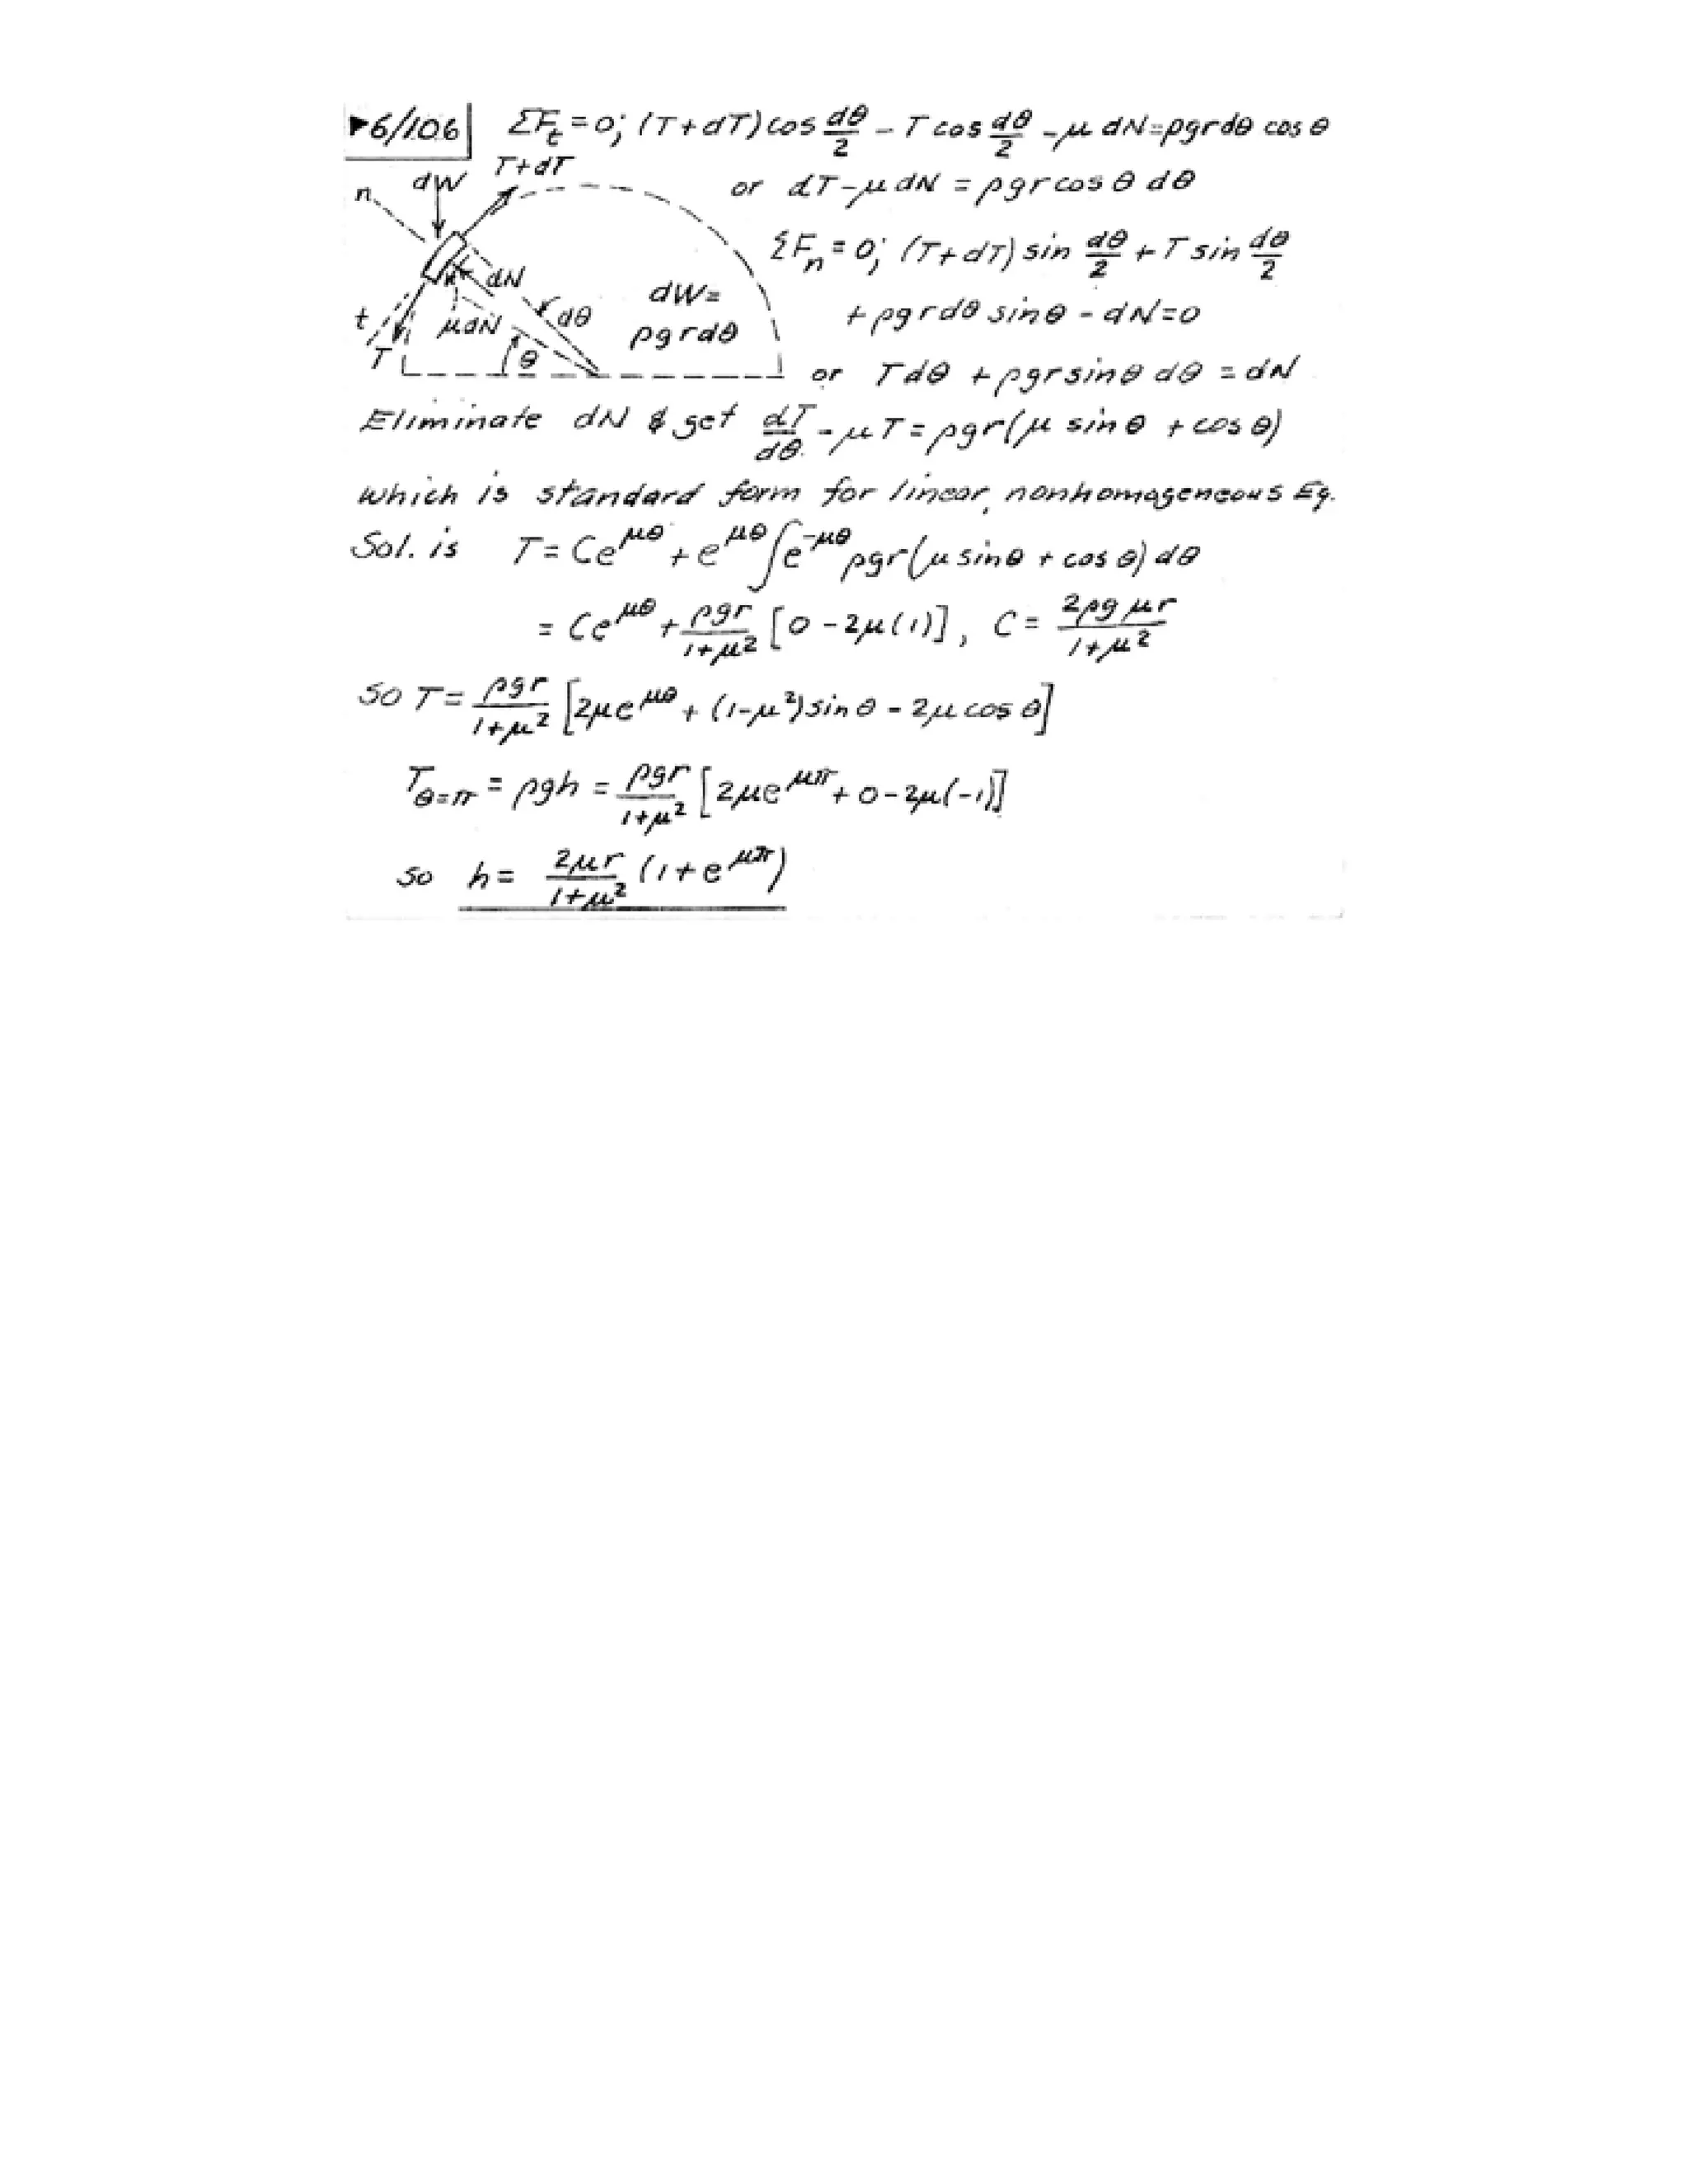 ▶6/106 ΣF_t = 0; (T + dT) cos dθ/2 - T cos dθ/2 - μ dN = ρgrdθ cos θ
or dT - μ dN = ρgr cos θ dθ
T + dT
dW
n
dN
μdN
dθ
t
T
θ
dW =
ρg rdθ
ΣF_n = 0; (T + dT) sin dθ/2 + T sin dθ/2
+ ρg rdθ sin θ - dN = 0
or T dθ + ρgr sin θ dθ = dN
Eliminate dN & get dT/dθ - μT = ρgr(μ sin θ + cos θ)
which is standard form for linear, nonhomogeneous Eq.
Sol. is T = Ce^{μθ} + e^{μθ} ∫e^{-μθ} ρgr(μ sin θ + cos θ) dθ
= Ce^{μθ} + ρgr/(1+μ²) [0 - 2μ(1)], C = 2ρg μr/(1+μ²)
so T = ρgr/(1+μ²) [2μe^{μθ} + (1-μ²) sin θ - 2μ cos θ]
T_{θ=π} = ρgh = ρgr/(1+μ²) [2μe^{μπ} + 0 - 2μ(-1)]
so h = 2μr/(1+μ²) (1 + e^{μπ})